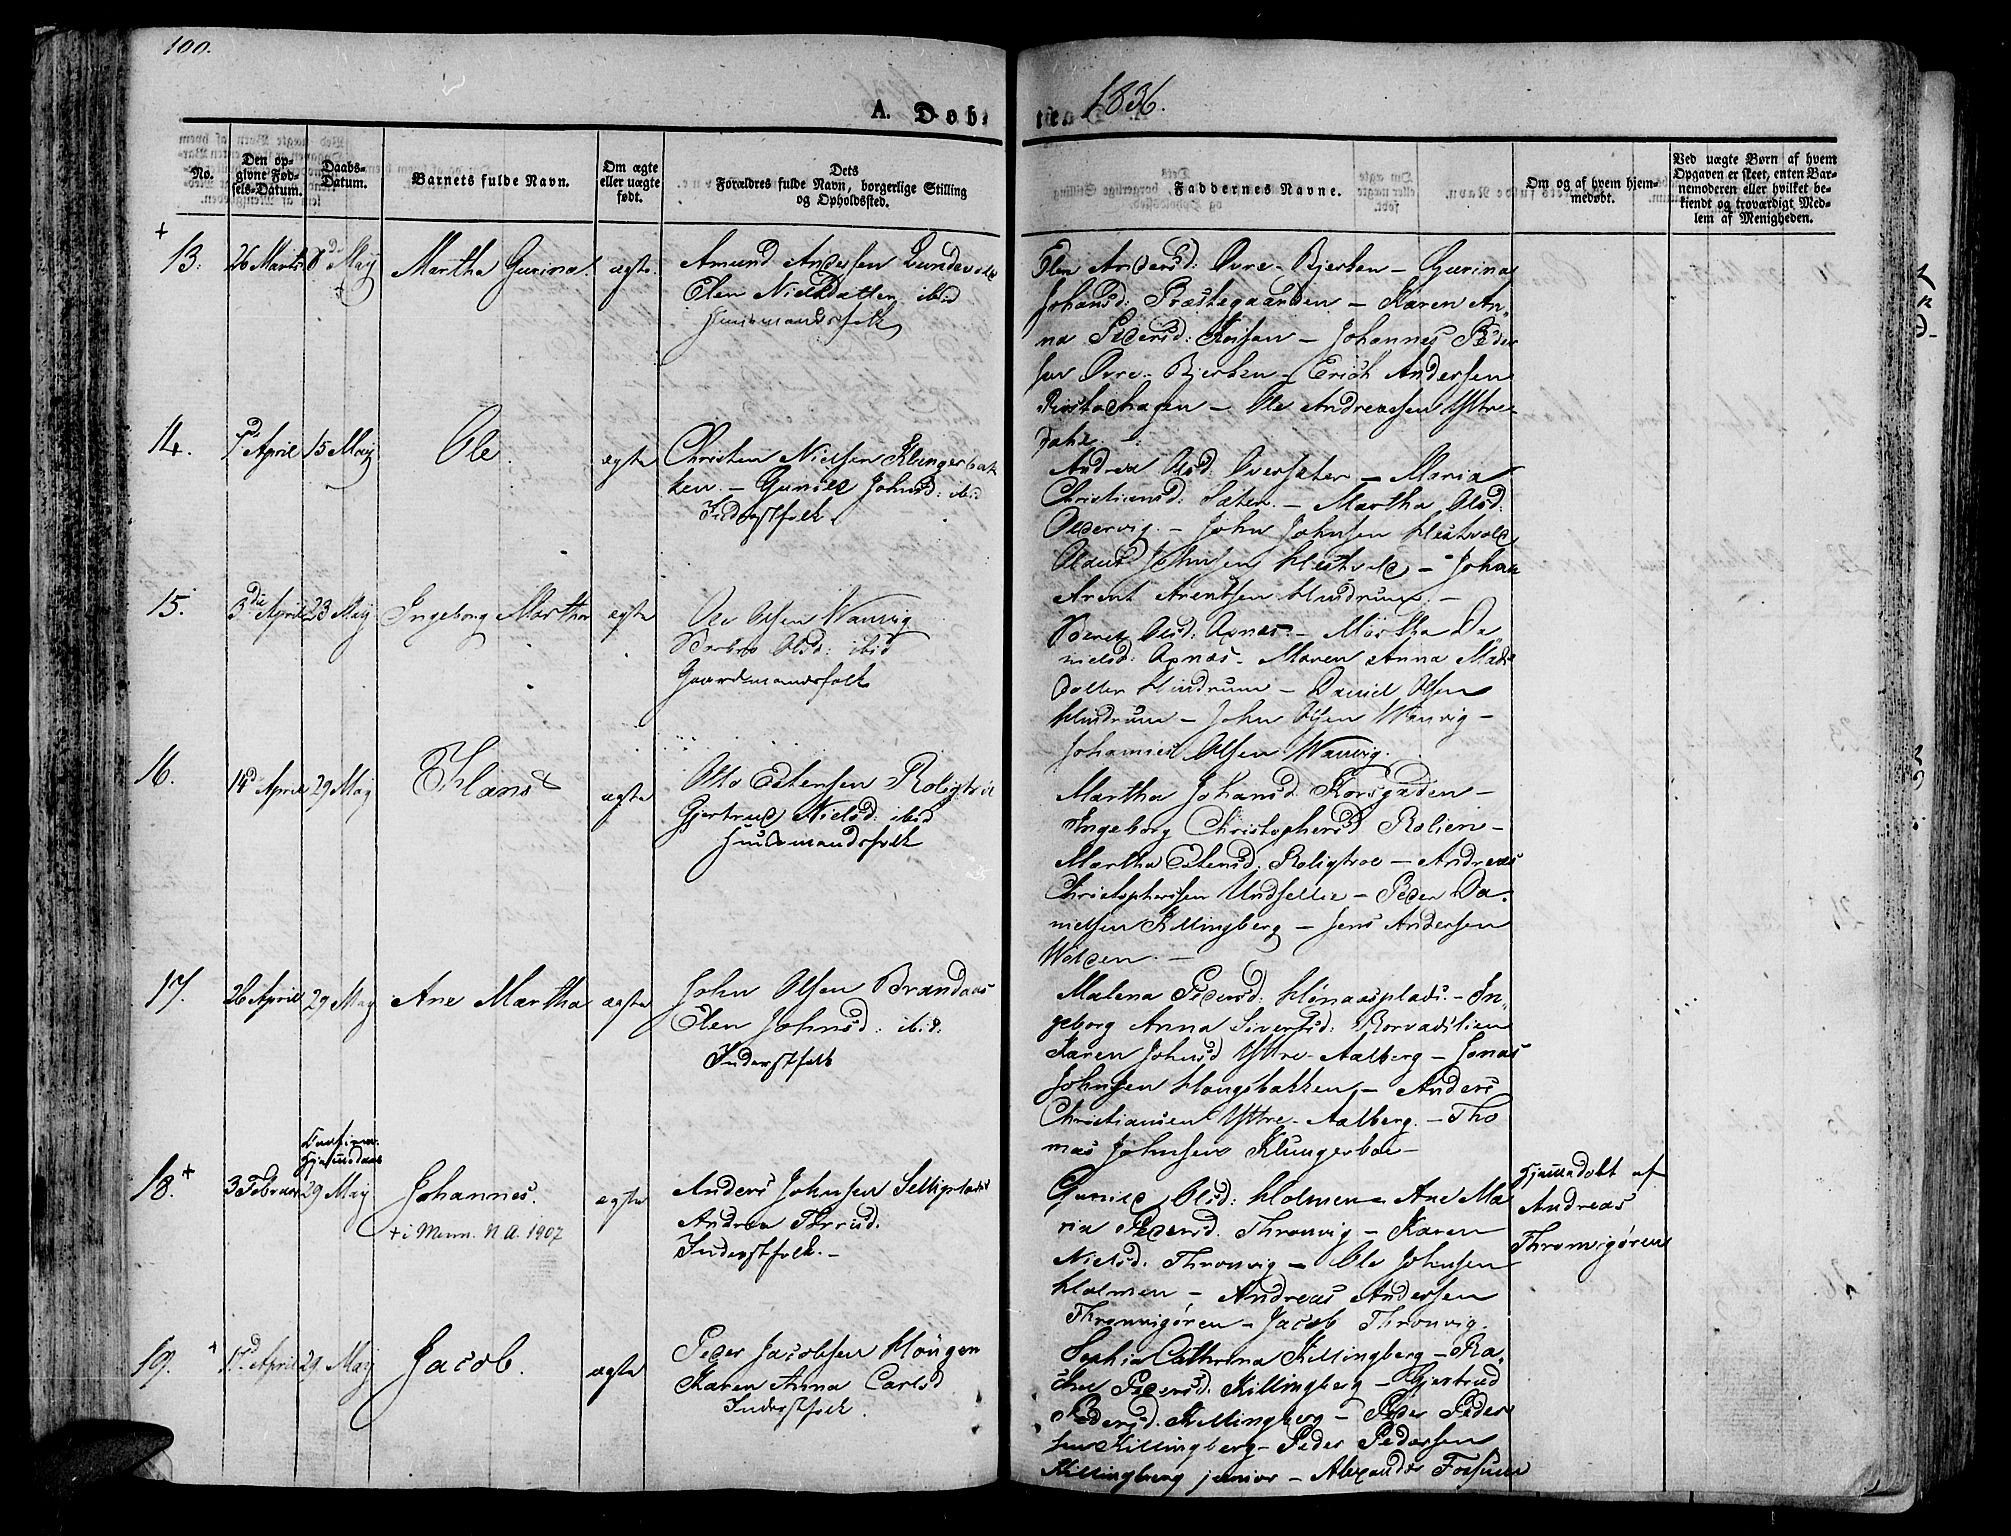 100.
1836.
A. Døbte
No.
Den op-
givne Fød-
sels-Datum.
Daabs-
Datum.
Barnets fulde Navn.
Om ægte
eller uægte
født.
Dets
Forældres fulde Navn, borgerlige Stilling
og Opholdssted.
Faddernes Navne.
Om og af hvem hjem-
medøbt.
Ved uægte Børn af hvem
Opgaven er skeet, enten Bar-
nemoderen eller hvilket be-
kjendt og troværdigt Med-
lem af Menigheden.
+
13. 26 Marts 8de May Martha Gurina. ægte.
Amund Andersen
Elen Nielsdatter ibid
Huusmandsfolk
Elen Andersd: Øvre-Bjerken - Gurina
Johansd: Præstegaarden - Karen An-
na Pedersd: - Johannes Peder
sen Øvre-Bjerken - Erich Andersen
- Ole Andreassen Yttre-
dahl.
14. 7d April 15 May Ole. ægte
Christen Nielsen Klungerbak
ken. - Gunild Johnsd: ibid
Inderstfolk
Andrea Olsd: Oversæter - Maria
Christiansd: Sæter. - Martha Olsd:
Oldervig. - John Johnsen Hestvold
Johnsen Hestvold - Johan
Arent Arentsen Hindrum. -
15. 3die April 23 May Ingeborg Martha ægte
Ole Olsen Wanvig
Olsd: ibid
Gaardmandsfolk
Olsd: Axnæs. - Martha Da
nielsd: Axnæs. - Maren Anna Mads
datter Hindrum - Daniel Olsen
Hindrum - John Olsen Wanvig -
Johannes Olsen Wanvig.
16. 14d April 29 May Hans ægte
Otto Estensen Roligtrø
Gjertrud Nielsd: ibid
Huusmandsfolk
Martha Johansd: Korsgaden -
Ingeborg Christophersd Rolien -
Martha Estensd. Roligtroe - Andreas
Christophersen Undsellie - Peder Da-
nielsen Killingberg - Jens Andersen
Wolden. -
17. 26 April 29 May Ane Martha ægte
John Olsen Brandaas
Elen Johnsd: ibid:
Inderstfolk
Malena Pedersd: Hønaasplads. - In-
geborg Anna Sivertsd: Rorvadslien
Karen Johnsd Yttre-Aalberg - Jonas
Johnsen Haugsbakken - Anders
Christiansen Yttre-Aalberg. - Tho
mas Johnsen Klungerboe -
18. + 3 Februar
Hjemmedaab
29 May Johannes. ægte
+ i Menn. N. A. 1907
Anders Johnsen Selligplads
Andrea Thrud.
Inderstfolk. -
Gunild Olsd: Holmen - Ane Ma
ria Pedersd. Thronvig - Karen
Nielsd. Thronvig - Ole Johnsen
Holmen - Andreas Andersen
Thronvigøren - Jacob Thronvig.
Hjemmedøbt af
Andreas
Thronvigøren
19. + 1d April 29 May Jacob. ægte
Peder Jacobsen Haugen
Karen Anna Carlsd
Inderstfolk.
Sophia Cathrina Killingberg - Ra-
chel Pedersd. Killingberg - Gjertrud
Pedersd. Killingberg - Peder Peder
sen Killingberg - Peder Pedersen
Killingberg junior - Alexander Forsnes